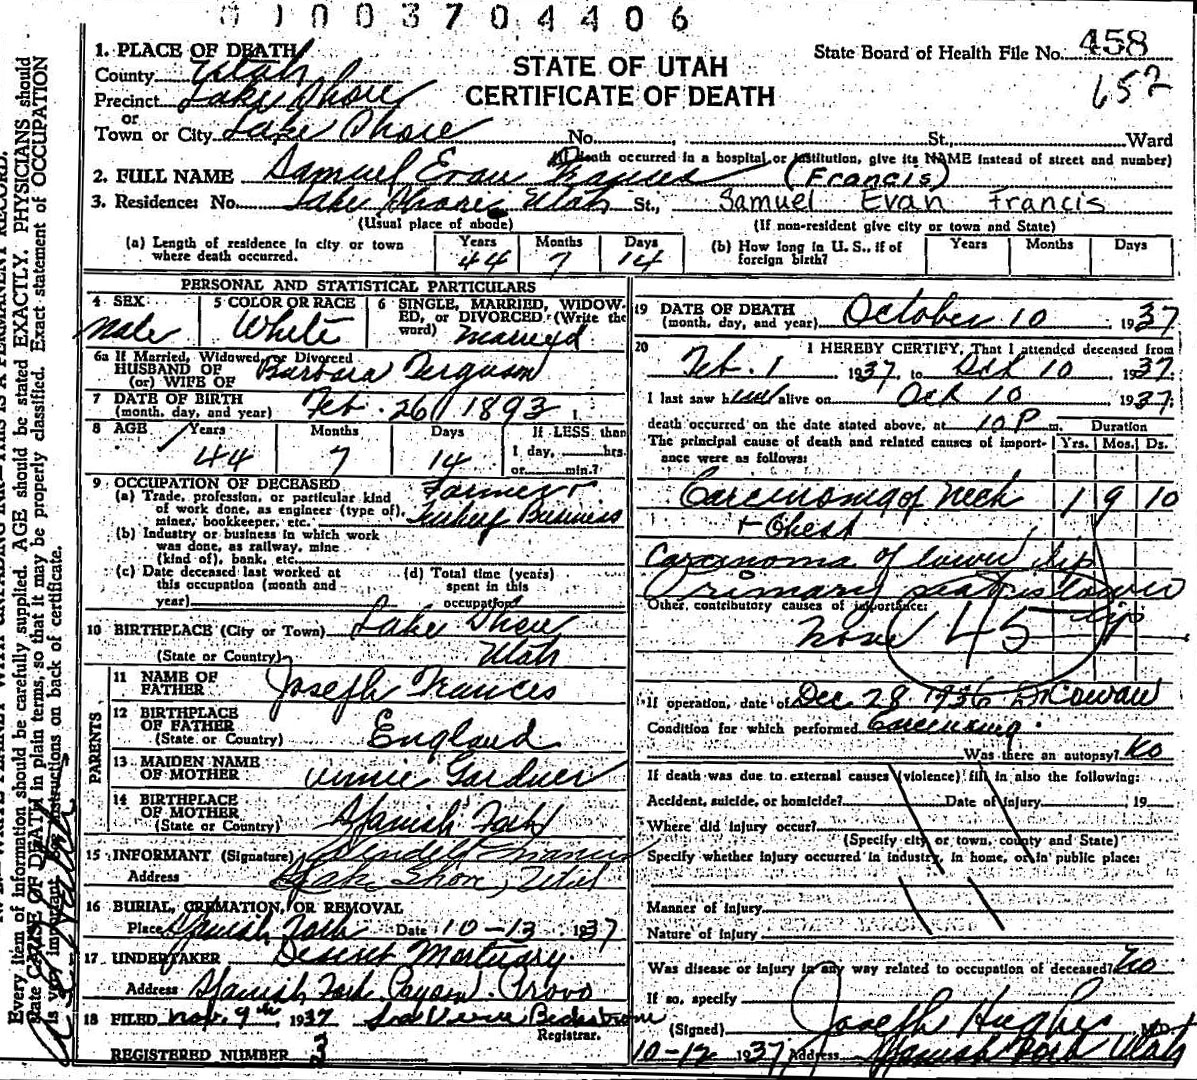 0 1 0 0 3 7 0 4 4 0 6
State Board of Health File No. 458
652
STATE OF UTAH
CERTIFICATE OF DEATH
1. PLACE OF DEATH
County Utah
Precinct Lake Shore
or
Town or City Lake Shore No. St., Ward
(If death occurred in a hospital or institution, give its NAME instead of street and number)
2. FULL NAME Samuel Evan Frances (Francis)
3. Residence: No. Lake Shore Utah St., Samuel Evan Francis
(Usual place of abode) (If non-resident give city or town and State)
(a) Length of residence in city or town where death occurred. Years 44 Months 7 Days 14 (b) How long in U. S., if of foreign birth? Years Months Days
PERSONAL AND STATISTICAL PARTICULARS
4 SEX Male
5 COLOR OR RACE White
6 SINGLE, MARRIED, WIDOWED, or DIVORCED (Write the word) Married
6a If Married, Widowed, or Divorced
HUSBAND OF Barbara Ferguson
(or) WIFE OF
7 DATE OF BIRTH
(month, day, and year) Feb. 26 1893
8 AGE Years 44 Months 7 Days 14 If LESS than
1 day, hrs.
or min.?
9 OCCUPATION OF DECEASED
(a) Trade, profession, or particular kind of work done, as engineer (type of), miner, bookkeeper, etc. Farmer & Turkey Business
(b) Industry or business in which work was done, as railway, mine (kind of), bank, etc.
(c) Date deceased last worked at this occupation (month and year)
(d) Total time (years) spent in this occupation
10 BIRTHPLACE (City or Town) Lake Shore
(State or Country) Utah
PARENTS
11 NAME OF FATHER Joseph Frances
12 BIRTHPLACE OF FATHER (State or Country) England
13 MAIDEN NAME OF MOTHER Annie Gardner
14 BIRTHPLACE OF MOTHER (State or Country) Spanish Fork
15 INFORMANT (Signature) Wendell Francis
Address Lake Shore, Utah
16 BURIAL, CREMATION, OR REMOVAL
Place Spanish Fork Date 10-13 1937
17 UNDERTAKER Deseret Mortuary
Address Spanish Fork Payson Provo
18 FILED Nov. 9th, 1937
Registrar.
REGISTERED NUMBER 3
19 DATE OF DEATH
(month, day, and year) October 10 1937
20 I HEREBY CERTIFY, That I attended deceased from
Feb. 1 1937, to Oct 10 1937.
I last saw him alive on Oct 10 1937.
death occurred on the date stated above, at 10 P m.
Duration
The principal cause of death and related causes of importance were as follows: Yrs. Mos. Ds.
Carcinoma of neck 1 9 10
+ Chest
Carcinoma of lower lip
Primary seat is lower lip
Other contributory causes of importance:
none 45
If operation, date of Dec 28 1936 Dr Cowan
Condition for which performed
Was there an autopsy? No
If death was due to external causes (violence) fill in also the following:
Accident, suicide, or homicide? Date of injury 19
Where did injury occur?
(Specify city or town, county and State)
Specify whether injury occurred in industry, in home, or in public place:
Manner of injury
Nature of injury
Was disease or injury in any way related to occupation of deceased? No
If so, specify
(Signed) Joseph Hughes M.D.
10-12 1937 Address Spanish Fork Utah
Every item of information should be carefully supplied. AGE should be stated EXACTLY. PHYSICIANS should
state CAUSE OF DEATH in plain terms, so that it may be properly classified. Exact statement of OCCUPATION
is very important. See instructions on back of certificate.